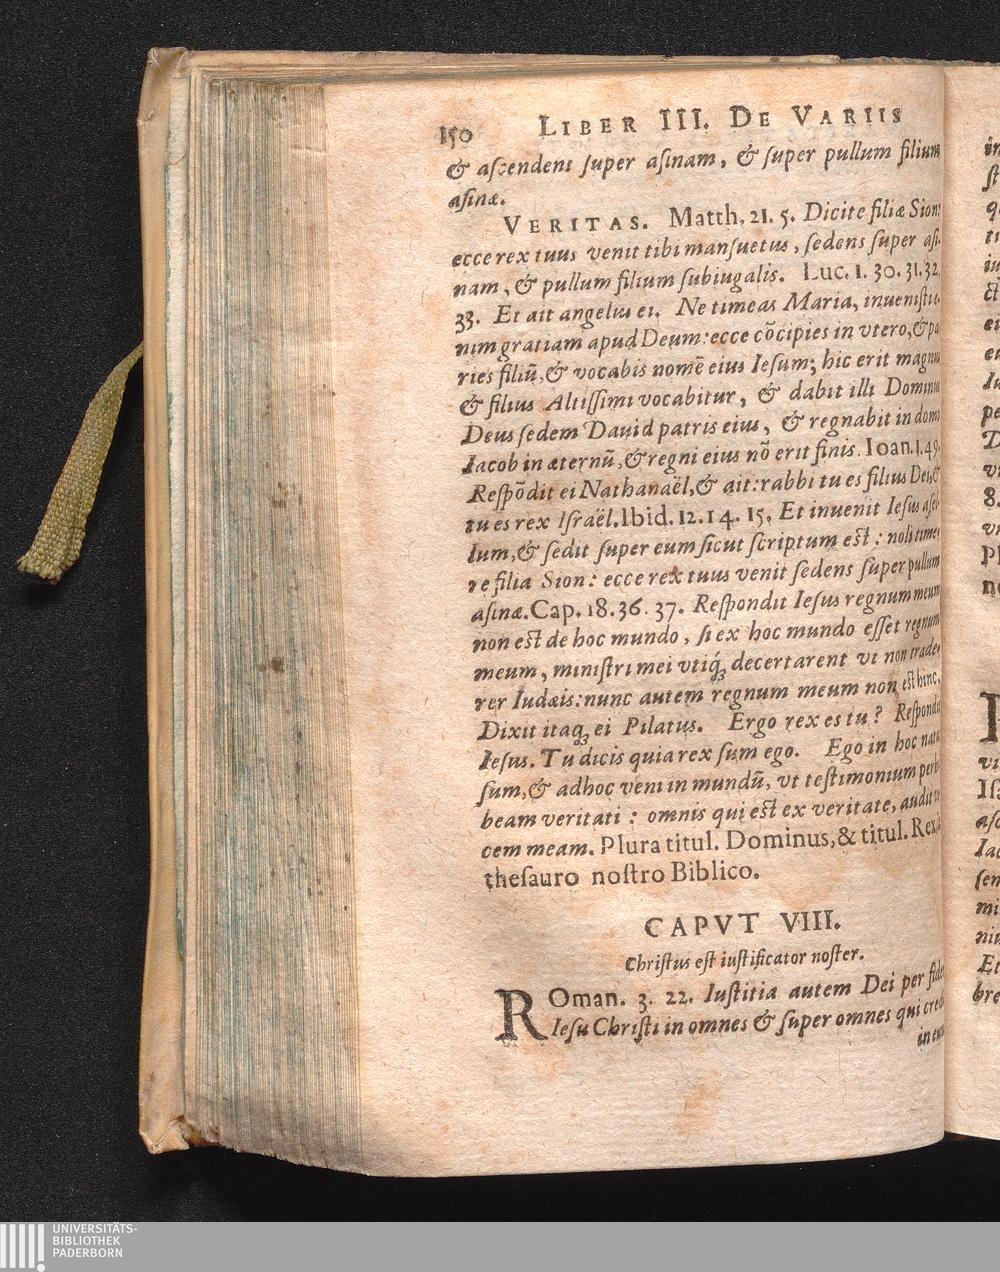 150 LIBER III. DE VARIIS
& aſcendens ſuper aſinam, & ſuper pullum filium
aſinæ.
VERITAS. Matth. 21. 5. Dicite filiæ Sion:
ecce rex tuus venit tibi manſuetus, ſedens ſuper aſi-
nam, & pullum filium ſubiugalis. Luc. 1. 30. 31. 32.
33. Et ait angelus ei. Ne timeas Maria, inueniſti e-
nim gratiam apud Deum: ecce cõcipies in vtero, & pa
ries filiũ, & vocabis nomẽ eius Ieſum; hic erit magnus
& filius Altiſſimi vocabitur, & dabit illi Dominus
Deus ſedem Dauid patris eius, & regnabit in domo
Iacob in æternũ, & regni eius nõ erit finis. Ioan. 1. 49.
Reſpõdit ei Nathanaël, & ait: rabbi tu es filius Dei, &
tu es rex Iſraël. Ibid. 12. 14. 15. Et inuenit Ieſus aſel-
lum, & ſedit ſuper eum ſicut ſcriptum eſt: noli time-
re filia Sion: ecce rex tuus venit ſedens ſuper pullum
aſinæ. Cap. 18. 36. 37. Reſpondit Ieſus regnum meum
non eſt de hoc mundo, ſi ex hoc mundo eſſet regnum
meum, miniſtri mei vtiq́ꝫ decertarent vt non trade-
rer Iudæis: nunc autem regnum meum non eſt hinc.
Dixit itaqꝫ ei Pilatus. Ergo rex es tu? Reſpondit
Ieſus. Tu dicis quia rex ſum ego. Ego in hoc natus
ſum, & ad hoc veni in mundũ, vt teſtimonium perhi-
beam veritati: omnis qui eſt ex veritate, audit vo-
cem meam. Plura titul. Dominus, & titul. Rex,
theſauro noſtro Biblico.
CAPVT VIII.
Chriſtus eſt iuſtificator noſter.
ROman. 3. 22. Iuſtitia autem Dei per fidem
Ieſu Chriſti in omnes & ſuper omnes qui
in eum
UNIVERSITÄTS-
BIBLIOTHEK
PADERBORN